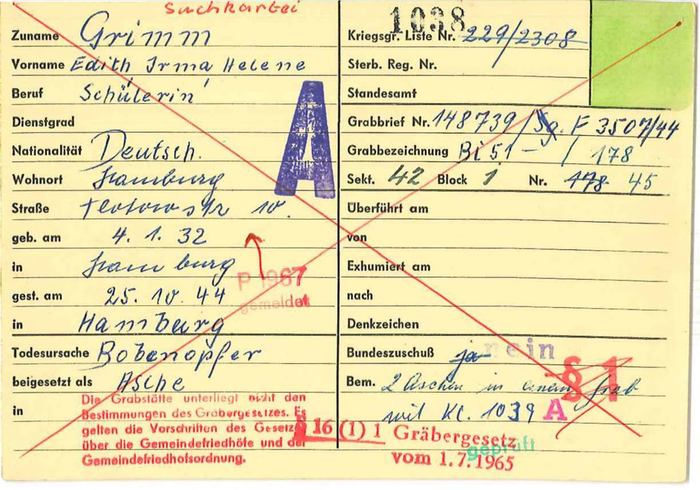 Suchkartei
1038
Zuname Grimm
Vorname Edith Irma Helene
Beruf Schülerin
Dienstgrad
Nationalität Deutsch.
Wohnort Hamburg
Straße str 10.
geb. am 4.1.32
in Hamburg
gest. am 25.10.44
in Hamburg
Todesursache Bobenopfer
beigesetzt als Asche
in
A
P 1967
gemeldet
Die Grabstätte unterliegt nicht den
Bestimmungen des Gräbergesetzes. Es
gelten die Vorschriften des Gesetz
über die Gemeindefriedhöfe und der
Gemeindefriedhofsordnung.
Kriegsgr. Liste Nr. 229/2308
Sterb. Reg. Nr.
Standesamt
Grabbrief Nr. 148739/Sg. F 3507/44
Grabbezeichnung Bi 51 - / 178
Sekt. 42 Block 1 Nr. 178 45
Überführt am
von
Exhumiert am
nach
Denkzeichen
Bundeszuschuß ja nein
§ 1
Bem. 2 Aschen in einem Grab
mit Kl. 1039 A
§ 16 (1) 1 Gräbergesetz
geprüft
vom 1.7.1965